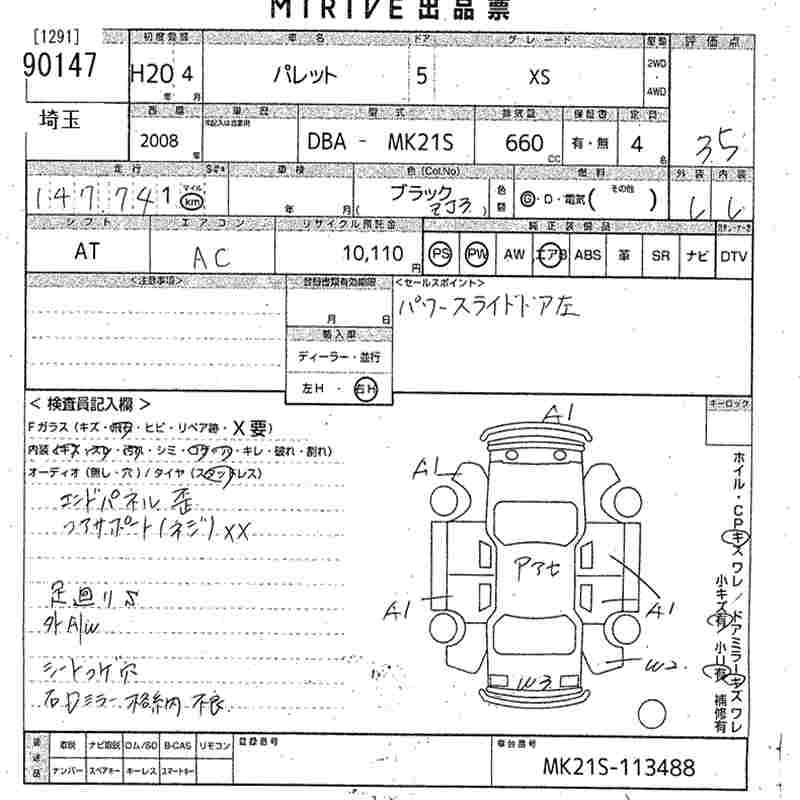 MIRIVE 出品票
[1291]
90147
初度登録 車名 ドア グレード 駆動 評価点
H20 4 パレット 5 XS 2WD・4WD 3.5
年 月
埼玉
西暦 車歴 型式 排気量 保証書 定員
2008 年 DBA - MK21S 660 CC 有・無 4 名
走行 車検 色(Col.No) 燃料 外装 内装
147,741 マイル km 年 月 ブラック ZJ3 色替 G・D・電気( その他 )
シフト エアコン リサイクル預託金 純正装備品
AT AC 10,110 円 PS PW AW エアB ABS 革 SR ナビ DTV
<注意事項> 登録書類有効期限 <セールスポイント>
月 日 パワースライドドア左
輸入車
ディーラー・並行
左H ・ 右H
< 検査員記入欄 > キーロック
Fガラス (キズ・飛石・ヒビ・リペア跡・X要)
内装 (キズ・スレ・汚れ・シミ・コゲ・穴・キレ・破れ・割れ)
オーディオ (無し・穴) / タイヤ (スタッドレス)
エンドパネル 歪
コアサポート(ネジ) XX
足廻りS
外A/W
シートコゲ穴
右Dミラー格納不良
A1
A1
アアセ
A1
A1
W2
W3
ホイル・CPキズ ワレ / ドアミラーキズ ワレ
小キズ有 / 小U有 補修有
後送品 取説 ナビ取説 ROM/SD B-CAS リモコン 登録番号 車台番号
ナンバー スペアキー キーレス スマートキー MK21S-113488